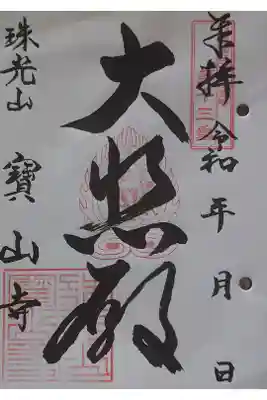 奉拝 令和 年 月 日
大悲殿
珠光山 寶山寺